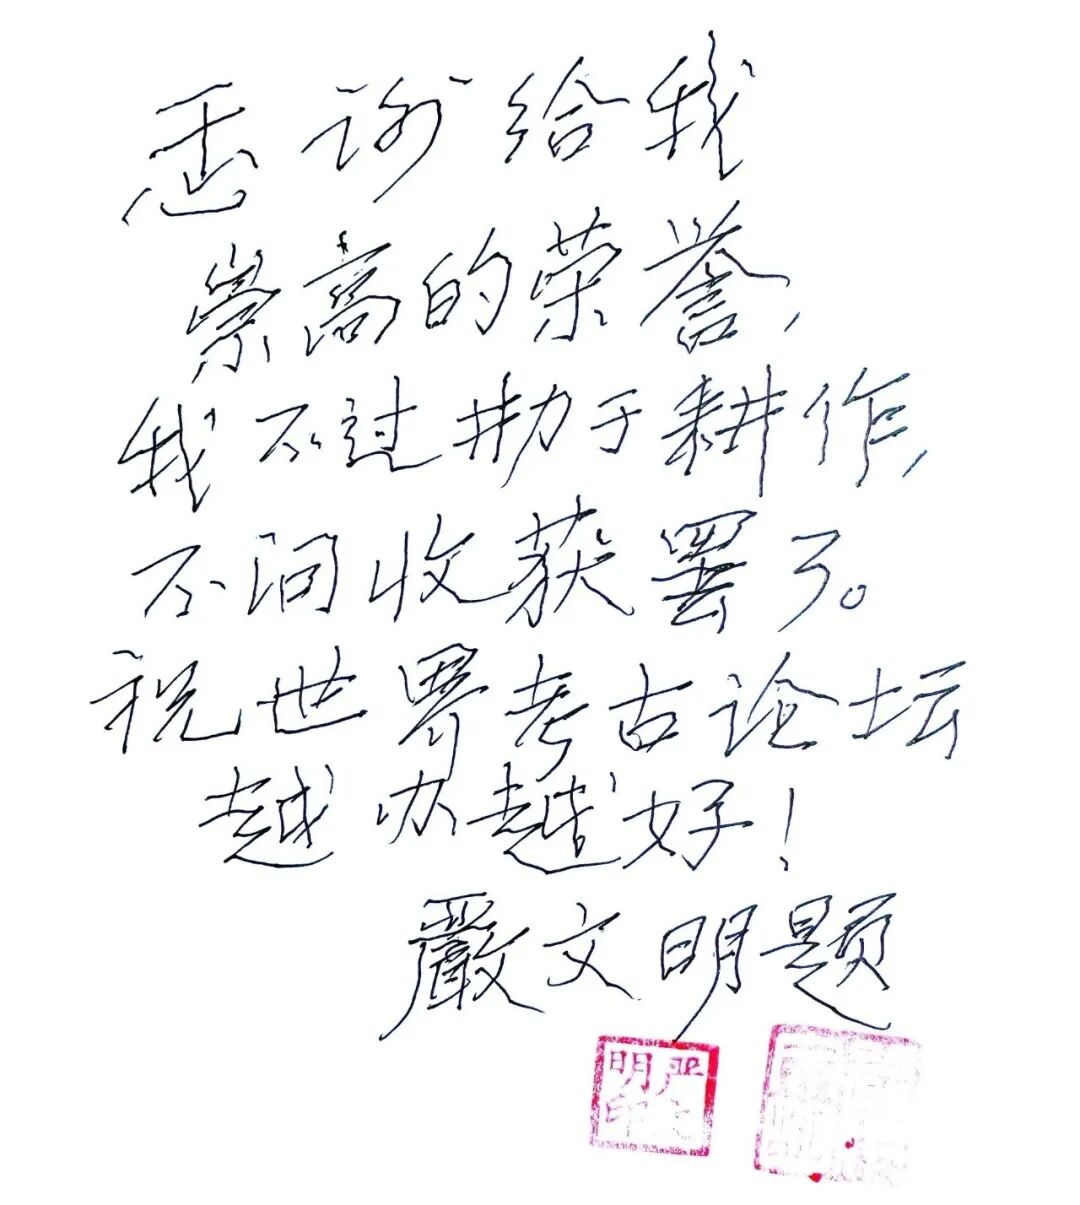 感谢给我
崇高的荣誉，
我不过勤于耕作，
不问收获罢了。
祝世界考古论坛
越办越好！
嚴文明题
严文明印